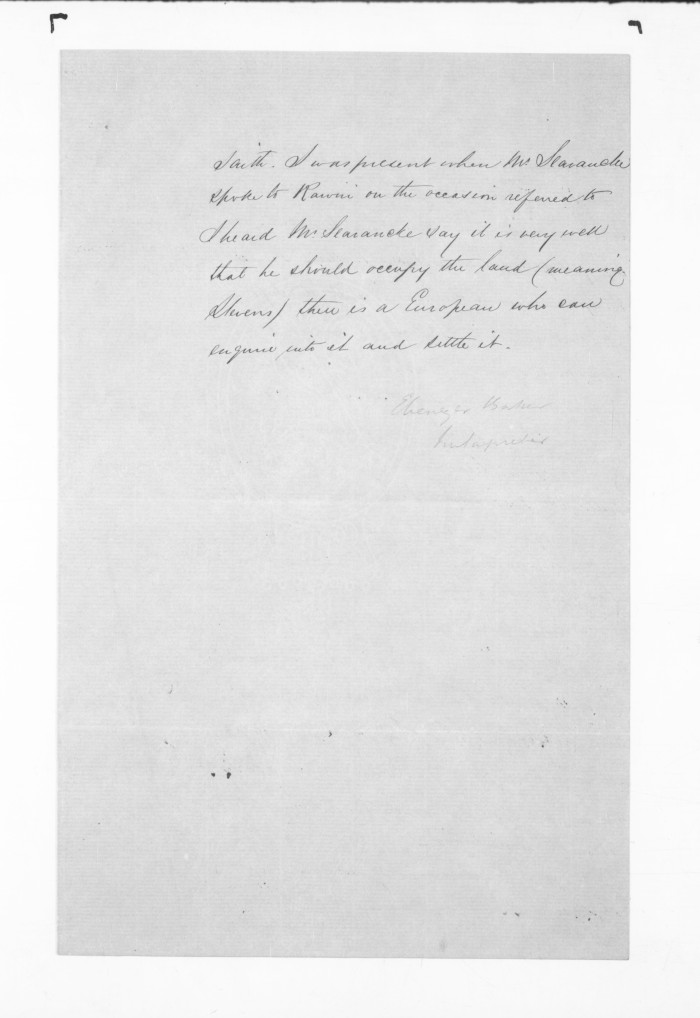 Saith. I was present when Mr Searancke
spoke to Rawiri on the occasion referred to
I heard Mr Searancke say it is very well
that he should occupy the land (meaning
Stevens) there is a European who can
enquire into it and settle it.
Ebenezer Baker
Interpreter